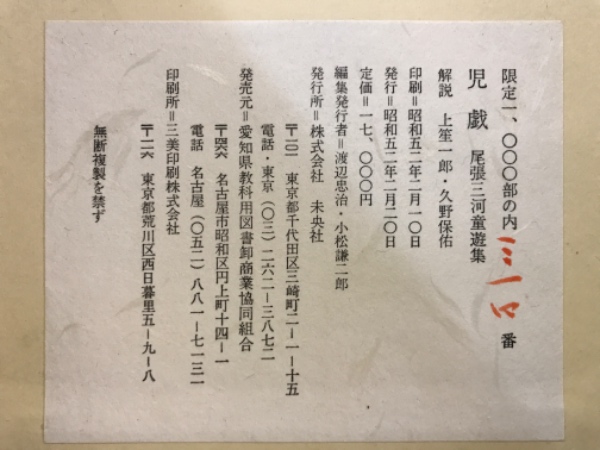 限定一、〇〇〇部の内 番
児戯 尾張三河童遊集
解説 上笙一郎・久野保佑
印刷＝昭和五二年二月一〇日
発行＝昭和五二年二月二〇日
定価＝一七、〇〇〇円
編集発行者＝渡辺忠治・小松謙二郎
発行所＝株式会社 未央社
〒一〇一 東京都千代田区三崎町二ー一ー十五
電話・東京（〇三）二六二ー三八七二
発売元＝愛知県教科用図書卸商業協同組合
〒四六六 名古屋市昭和区円上町十四ー一
電話 名古屋（〇五二）八八一ー七一三一
印刷所＝三美印刷株式会社
〒一一六 東京都荒川区西日暮里五ー九ー八
無断複製を禁ず